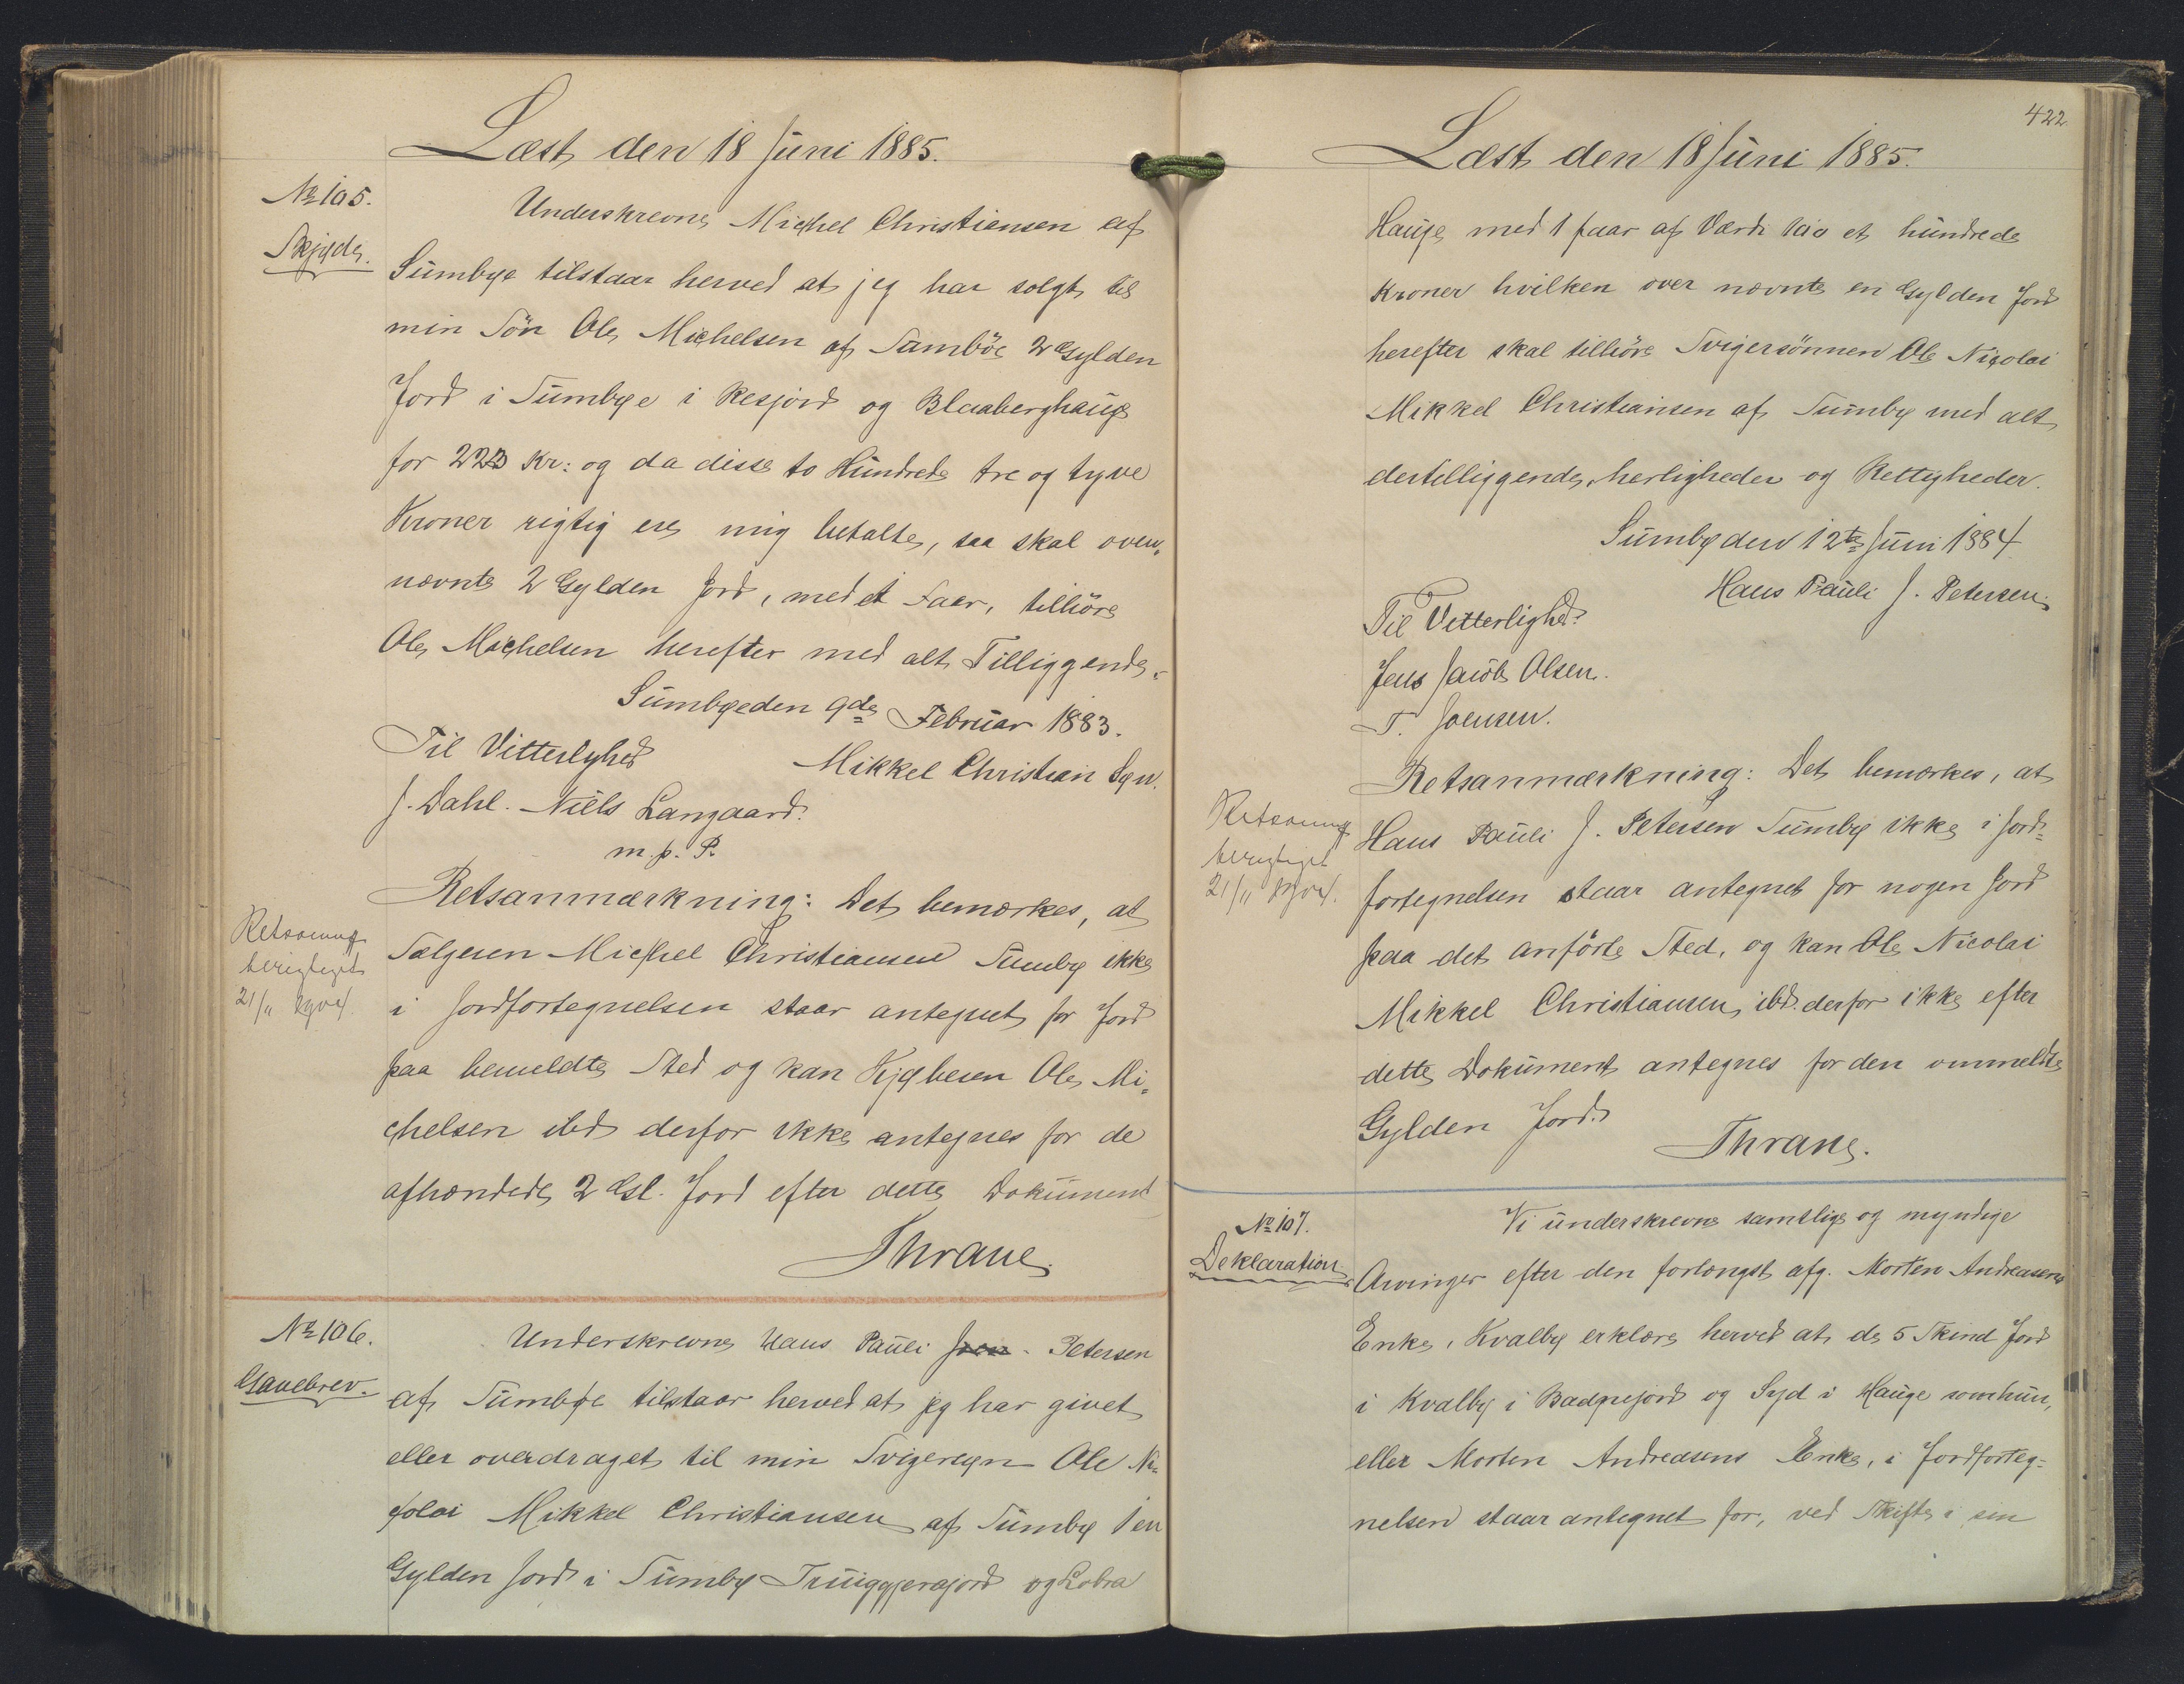 Læst den 18 Juni 1885.
No 105.
Skjøde.
Underskrevne Michel Christiansen af
Sumbye tilstaar herved at jeg har solgt til
min Sön Ole Michelsen af Sumböe 2 Gylden
Jord i Sumbye i Resjord og Blaaberghauge
for 223 Kr: og da disse to Hundrede tre og tyve
Kroner rigtig ere mig betalte, saa skal oven-
nævnte 2 Gylden Jord, med et Faar, tilhöre
Ole Michelsen herefter med alt Tilliggende.
Sumbye den 9de Februar 1883.
Til Vitterlighed
Mikkel Christian Syn.
J. Dahl. Niels Langaard.
m. p. P.
Retsanm
berigtiget
21/11
Retsanmærkning: Det bemærkes, at
Sælgeren Michel Christiansen Sumbø ikke
i Jordfortegnelsen staar antegnet for Jord
paa bemeldte Sted og kan Kjøberen Ole Mi-
chelsen ibd derfor ikke antegnes for de
afhændede 2 Gl. Jord efter dette Dokument
Thrane.
No 106.
Gavebrev.
Underskrevne Hans Pauli Joen - Petersen
af Sumbøe tilstaar herved at jeg har givet
eller overdraget til min Svigersyn Ole Ni-
colai Mikkel Christiansen af Sumbø 1 en
Gylden Jord i Sumbø Truiggjerajord og Lobra
422
Læst den 18 Juni 1885.
Hauge med 1 faar af Værdi 100 et hundrede
Kroner hvilken over nævnte en Gylden Jord
herefter skal tilhöre Svigersönnen Ole Nicolai
Mikkel Christiansen af Sumby med alt
dertilliggende, herligheder og Rettigheder.
Sumby den 12te Juni 1884
Hans Pauli J. Petersen.
Til Vitterlighed:
Jens Jacob Olsen.
T. Joensen.
Retsanm
berigtiget
21/11
Retsanmærkning: Det bemærkes, at
Hans Pauli J. Petersen Sumbø ikke i Jord-
fortegnelsen staar antegnet for nogen Jord
paa det anförte Sted, og kan Ole Nicolai
Mikkel Christiansen ibd. derfor ikke efter
dette Dokument antegnes for den ommeldte
Gylden Jord.
Thrane.
No 107.
Deklaration
Vi underskrevne samtlige og myndige
Arvinger efter den forlængst afg. Morten Andreasens
Enke, Kvalbø erklære herved at de 5 Skind Jord
i Kvalbø i Badnejord og Syd i Hauge som hun,
eller Morten Andreasens Enke, i Jordforteg-
nelsen staar antegnet for, ved Skifte i sin